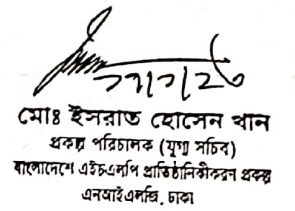 ২৭/৭/২৬
মোঃ ইসরাত হোসেন খান
প্রকল্প পরিচালক (যুগ্ম সচিব)
বাংলাদেশে এইচএমপি প্রাতিষ্ঠানিকীকরণ প্রকল্প
এনআইএমসি, ঢাকা